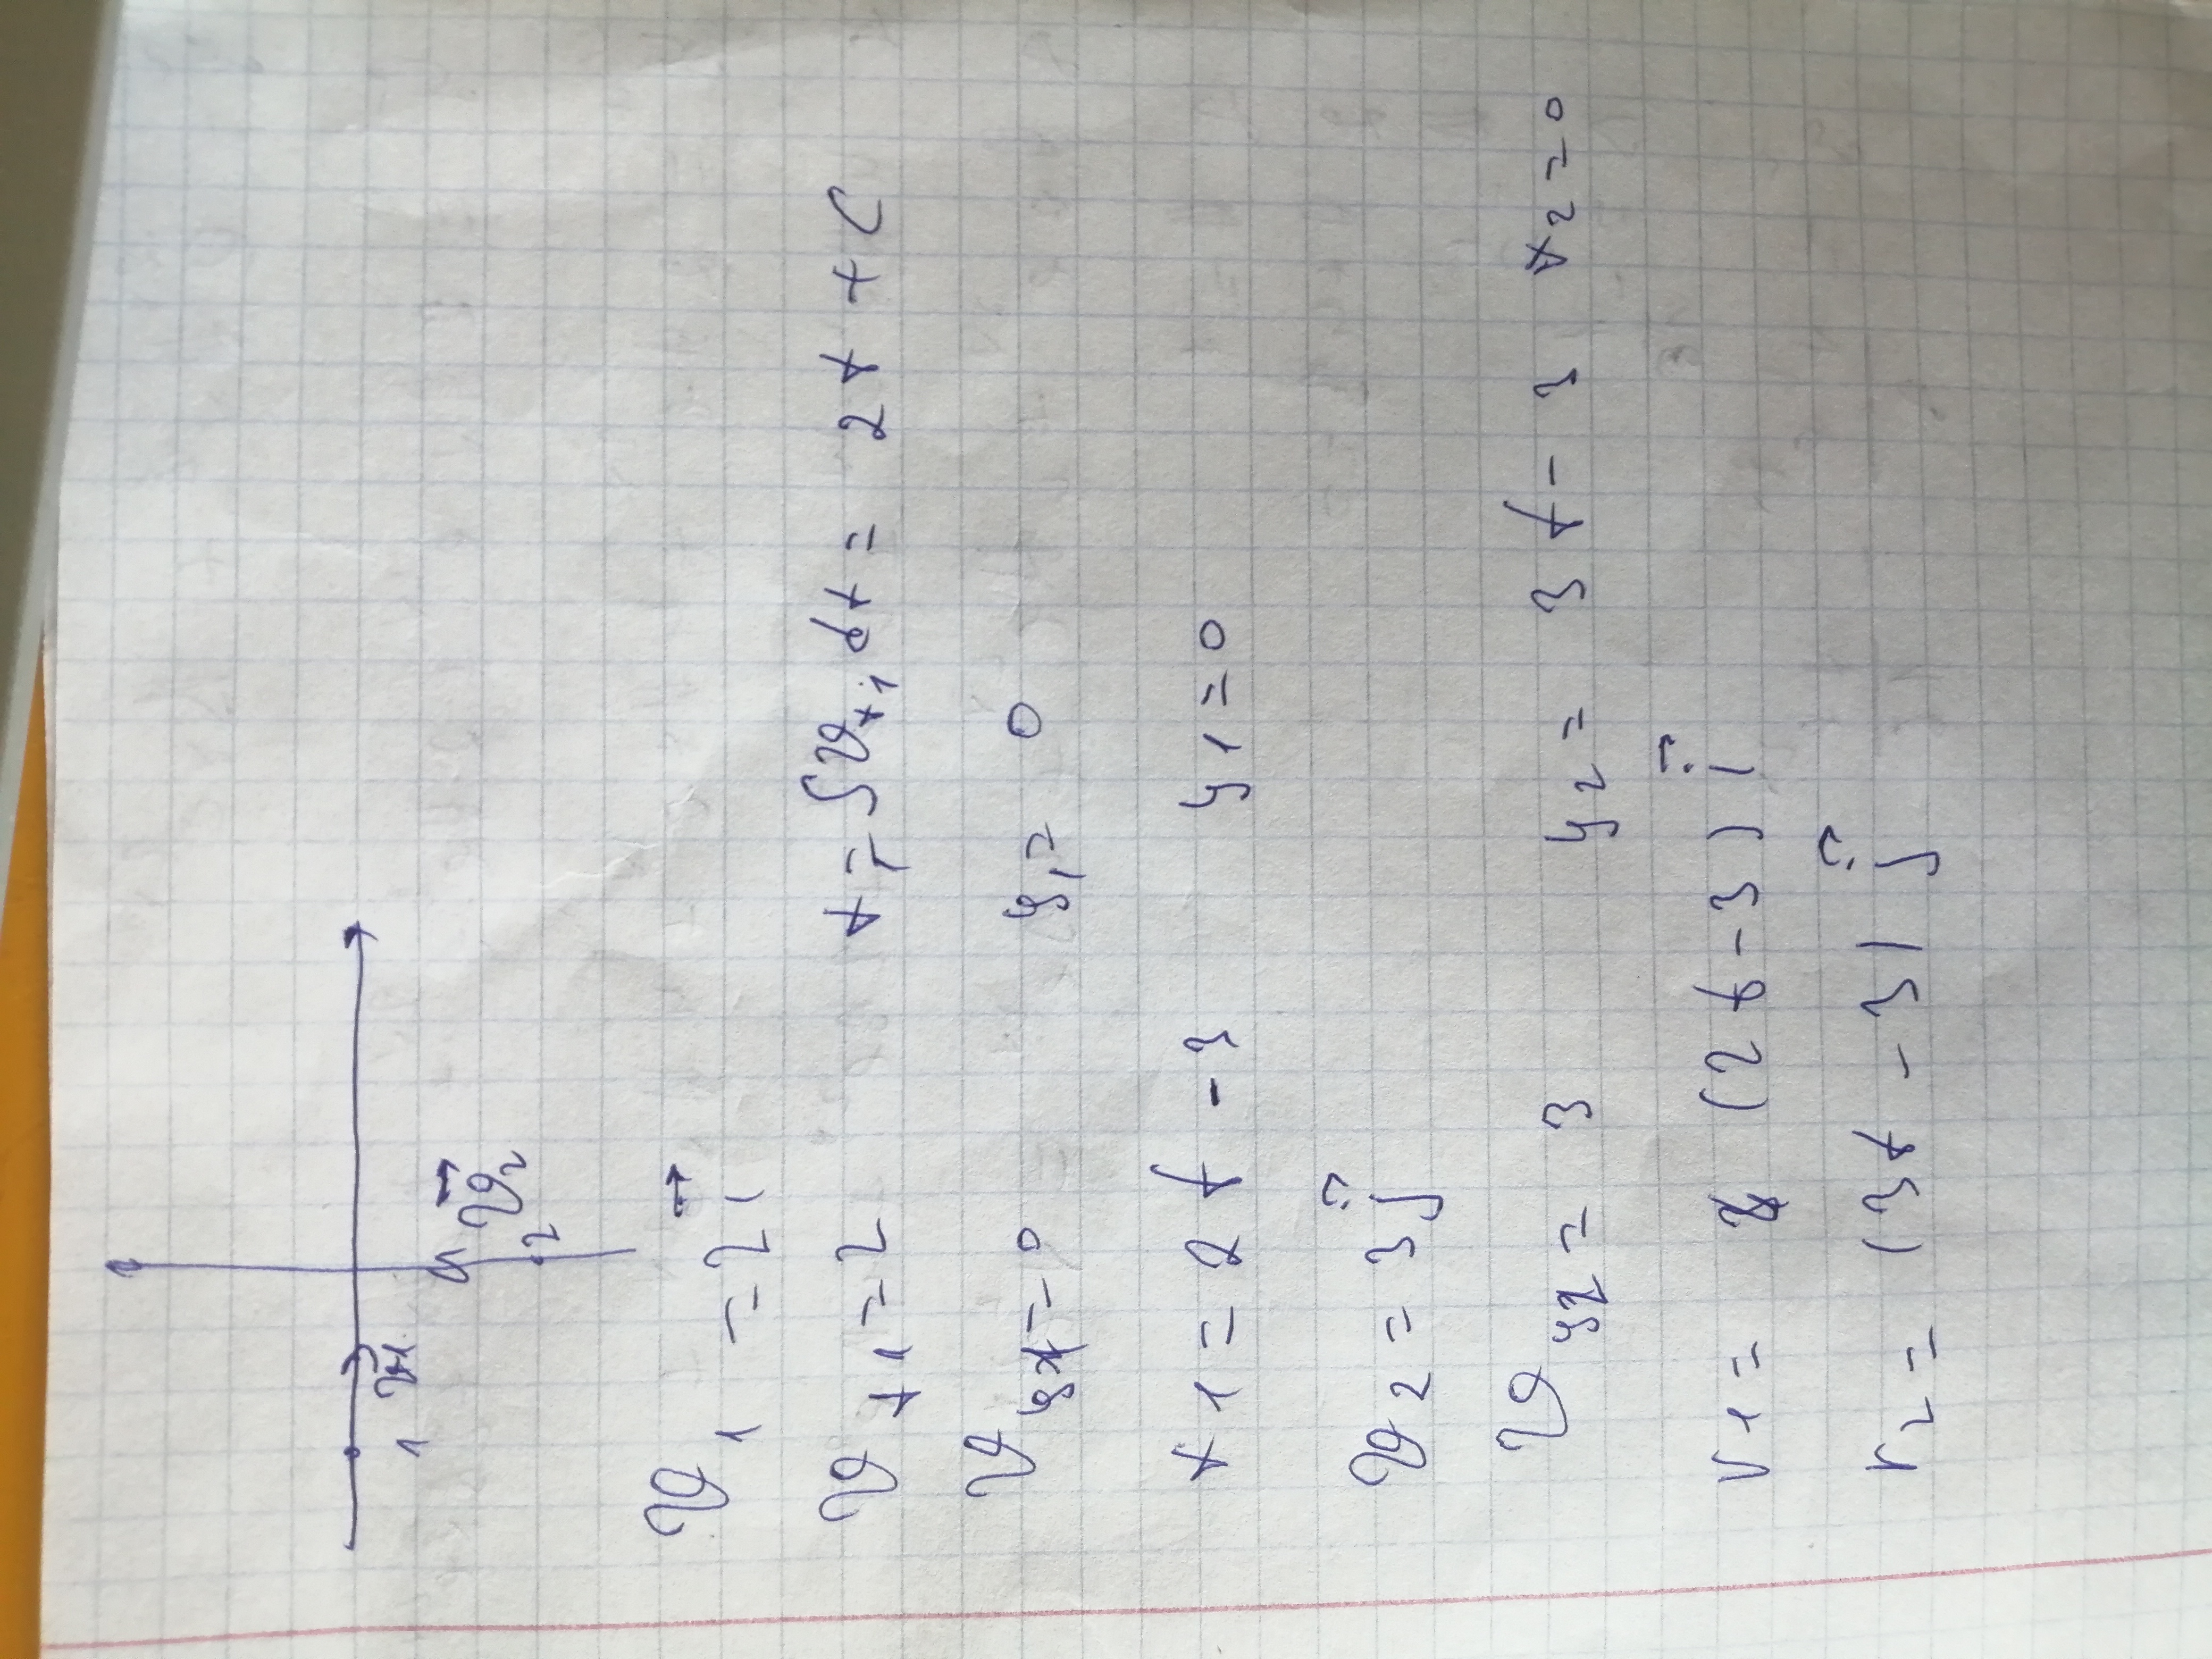 1 v⃗1
v⃗2
2
v1 = 2i⃗
vx1 = 2 x1 = ∫vx1 dt = 2t + C
vy1 = 0 y1 = 0
x1 = 2t - 3 y1 = 0
v2 = 3j⃗
vy2 = 3 y2 = 3t - 3 x2 = 0
r1 = (2t - 3) i⃗
r2 = (3t - 3) j⃗